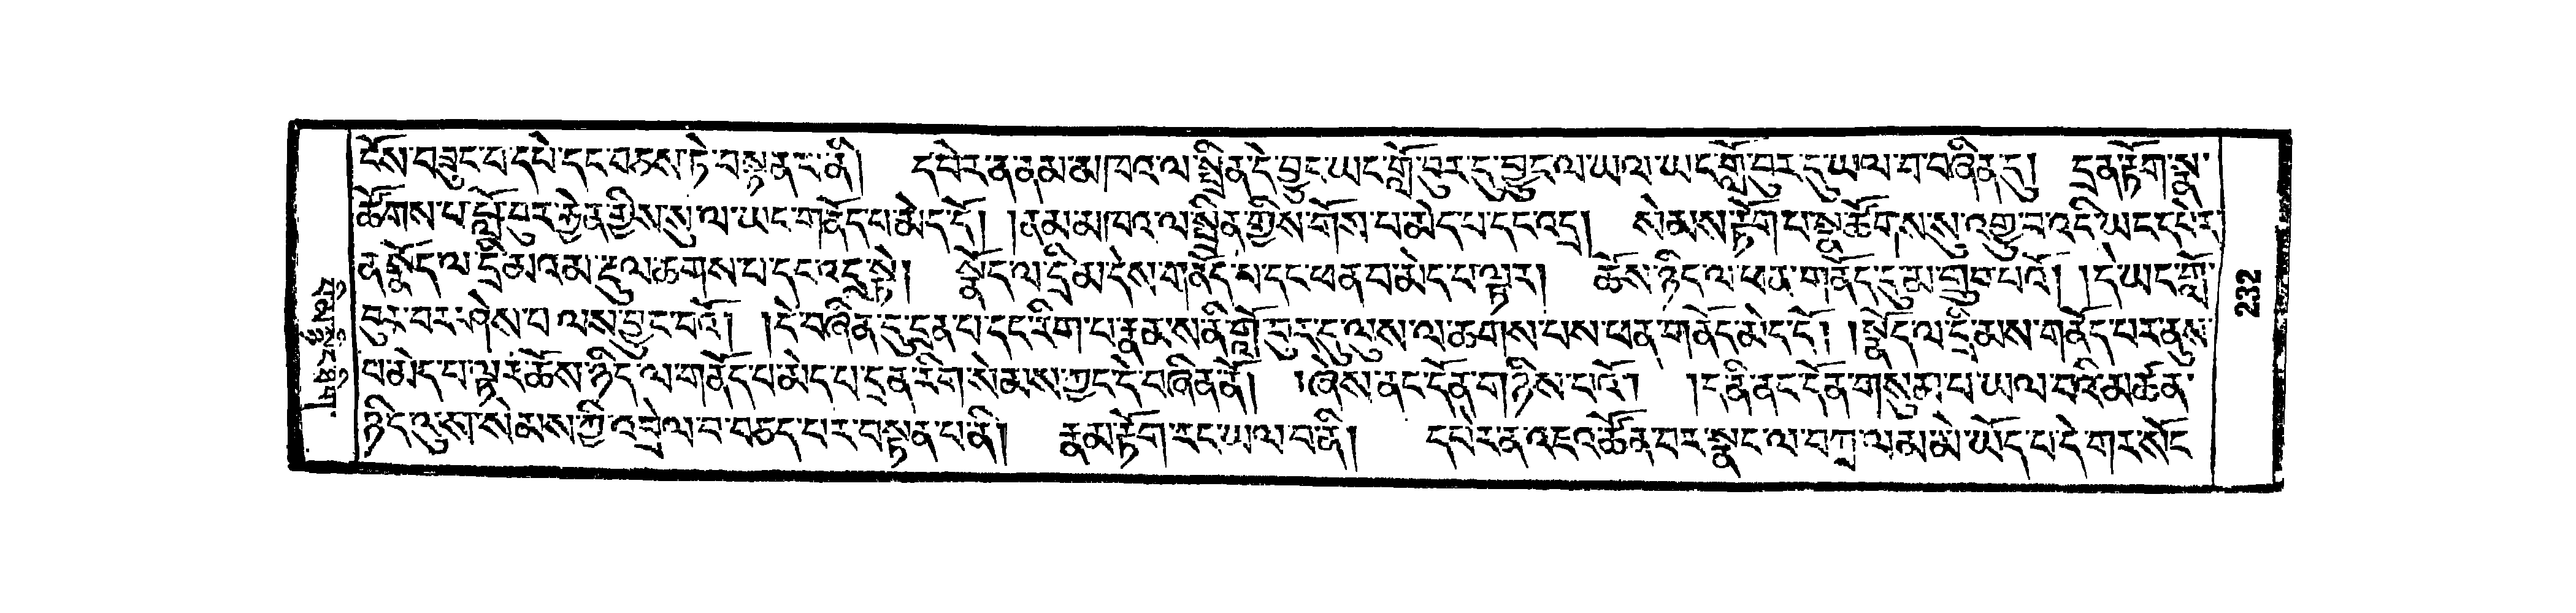 ངོས་བཟུང་བ་དཔེ་དང་བཅས་ཏེ་བསྟན་པ་ནི། དཔེར་ན་ནམ་མཁའ་ལ་སྤྲིན་དེ་བྱུང་ཡང་གློ་བུར་དུ་བྱུང་ལ་ཡལ་ཡང་གློ་བུར་དུ་ཡལ་བ་བཞིན་དུ། དྲན་རྟོག་སྣ་
ཚོགས་པ་གློ་བུར་རྐྱེན་གྱིས་སུ་ལ་ཡང་གནོད་པ་མེད་དོ། །ནམ་མཁའ་ལ་སྤྲིན་གྱིས་གོས་པ་མེད་པ་དང་འདྲ། སེམས་རྟོག་པ་སྣ་ཚོགས་སུ་འགྱུ་བ་འདི་ཡང་དཔེར་
ན་སྣོད་ལ་དྲི་མའམ་རྡུལ་ཆགས་པ་དང་འདྲ་སྟེ། སྣོད་ལ་དྲི་མ་དེས་གནོད་པ་དང་ཕན་བ་མེད་པ་ལྟར། ཆོས་ཉིད་ལ་ཕན་གནོད་དུ་མ་གྲུབ་པའོ། །དེ་ཡང་གློ་
བུར་བར་ཤེས་པ་ལས་བྱུང་བའོ། །དེ་བཞིན་དུ་དྲན་པ་དང་རིག་པ་རྣམས་ནི་གློ་བུར་དུ་ལུས་ལ་ཆགས་པས་ཕན་གནོད་མེད་དོ། །སྣོད་ལ་དྲི་མས་གནོད་པར་ནུས་
པ་མེད་པ་ལྟར་ཆོས་ཉིད་ལ་གནོད་པ་མེད་པ་དྲན་རིག་སེམས་ཀྱང་དེ་བཞིན་ནོ། །ཞེས་ནང་དོན་གཉིས་པའོ། །ད་ནི་ནང་དོན་གསུམ་པ་ཡལ་བའི་མཚན་
ཉིད་འུས་སེམས་ཀྱི་འབྲེལ་བ་བཅད་པར་བསྟན་པ་ནི། རྣམ་རྟོག་རང་ཡལ་བ་ནི། དཔེར་ན་འཇའ་ཚོན་བར་སྣང་ལ་བཀྲ་ལམ་མེ་ཡོད་པ་དེ་གར་སོང